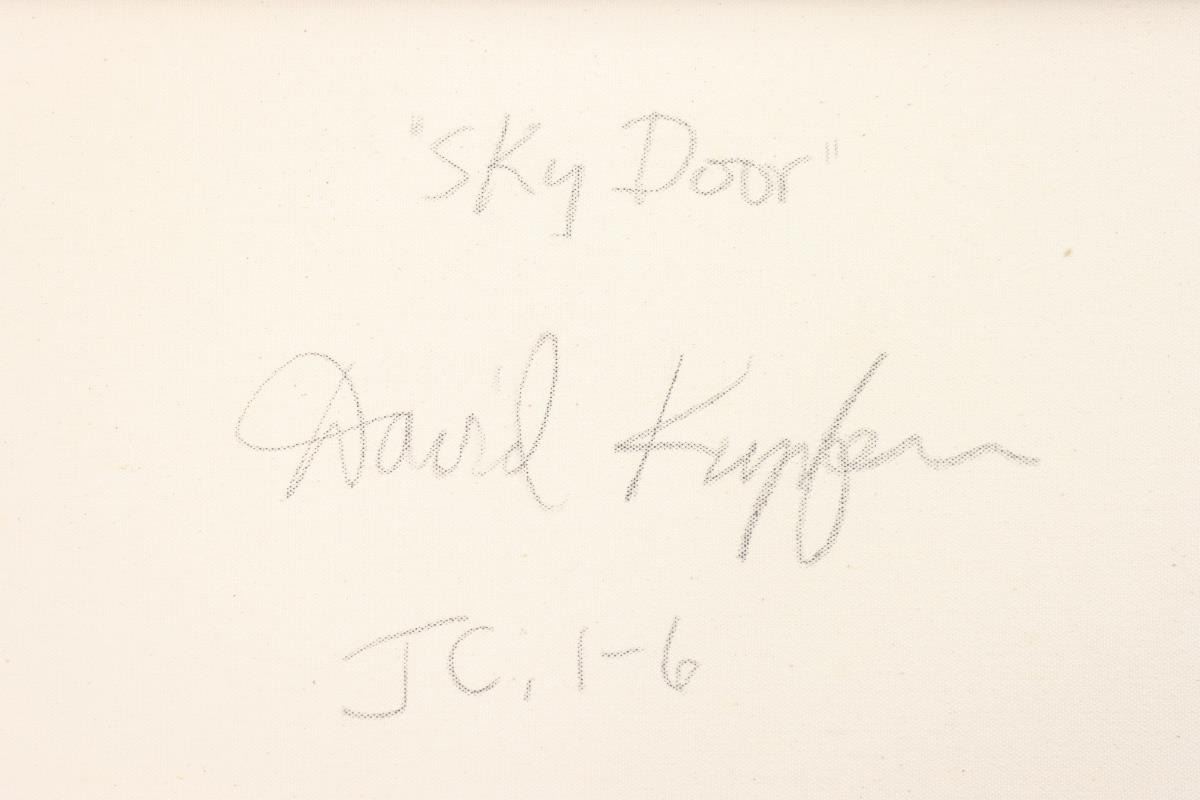 "Sky Door"
David Kupferman
JC, 1-6